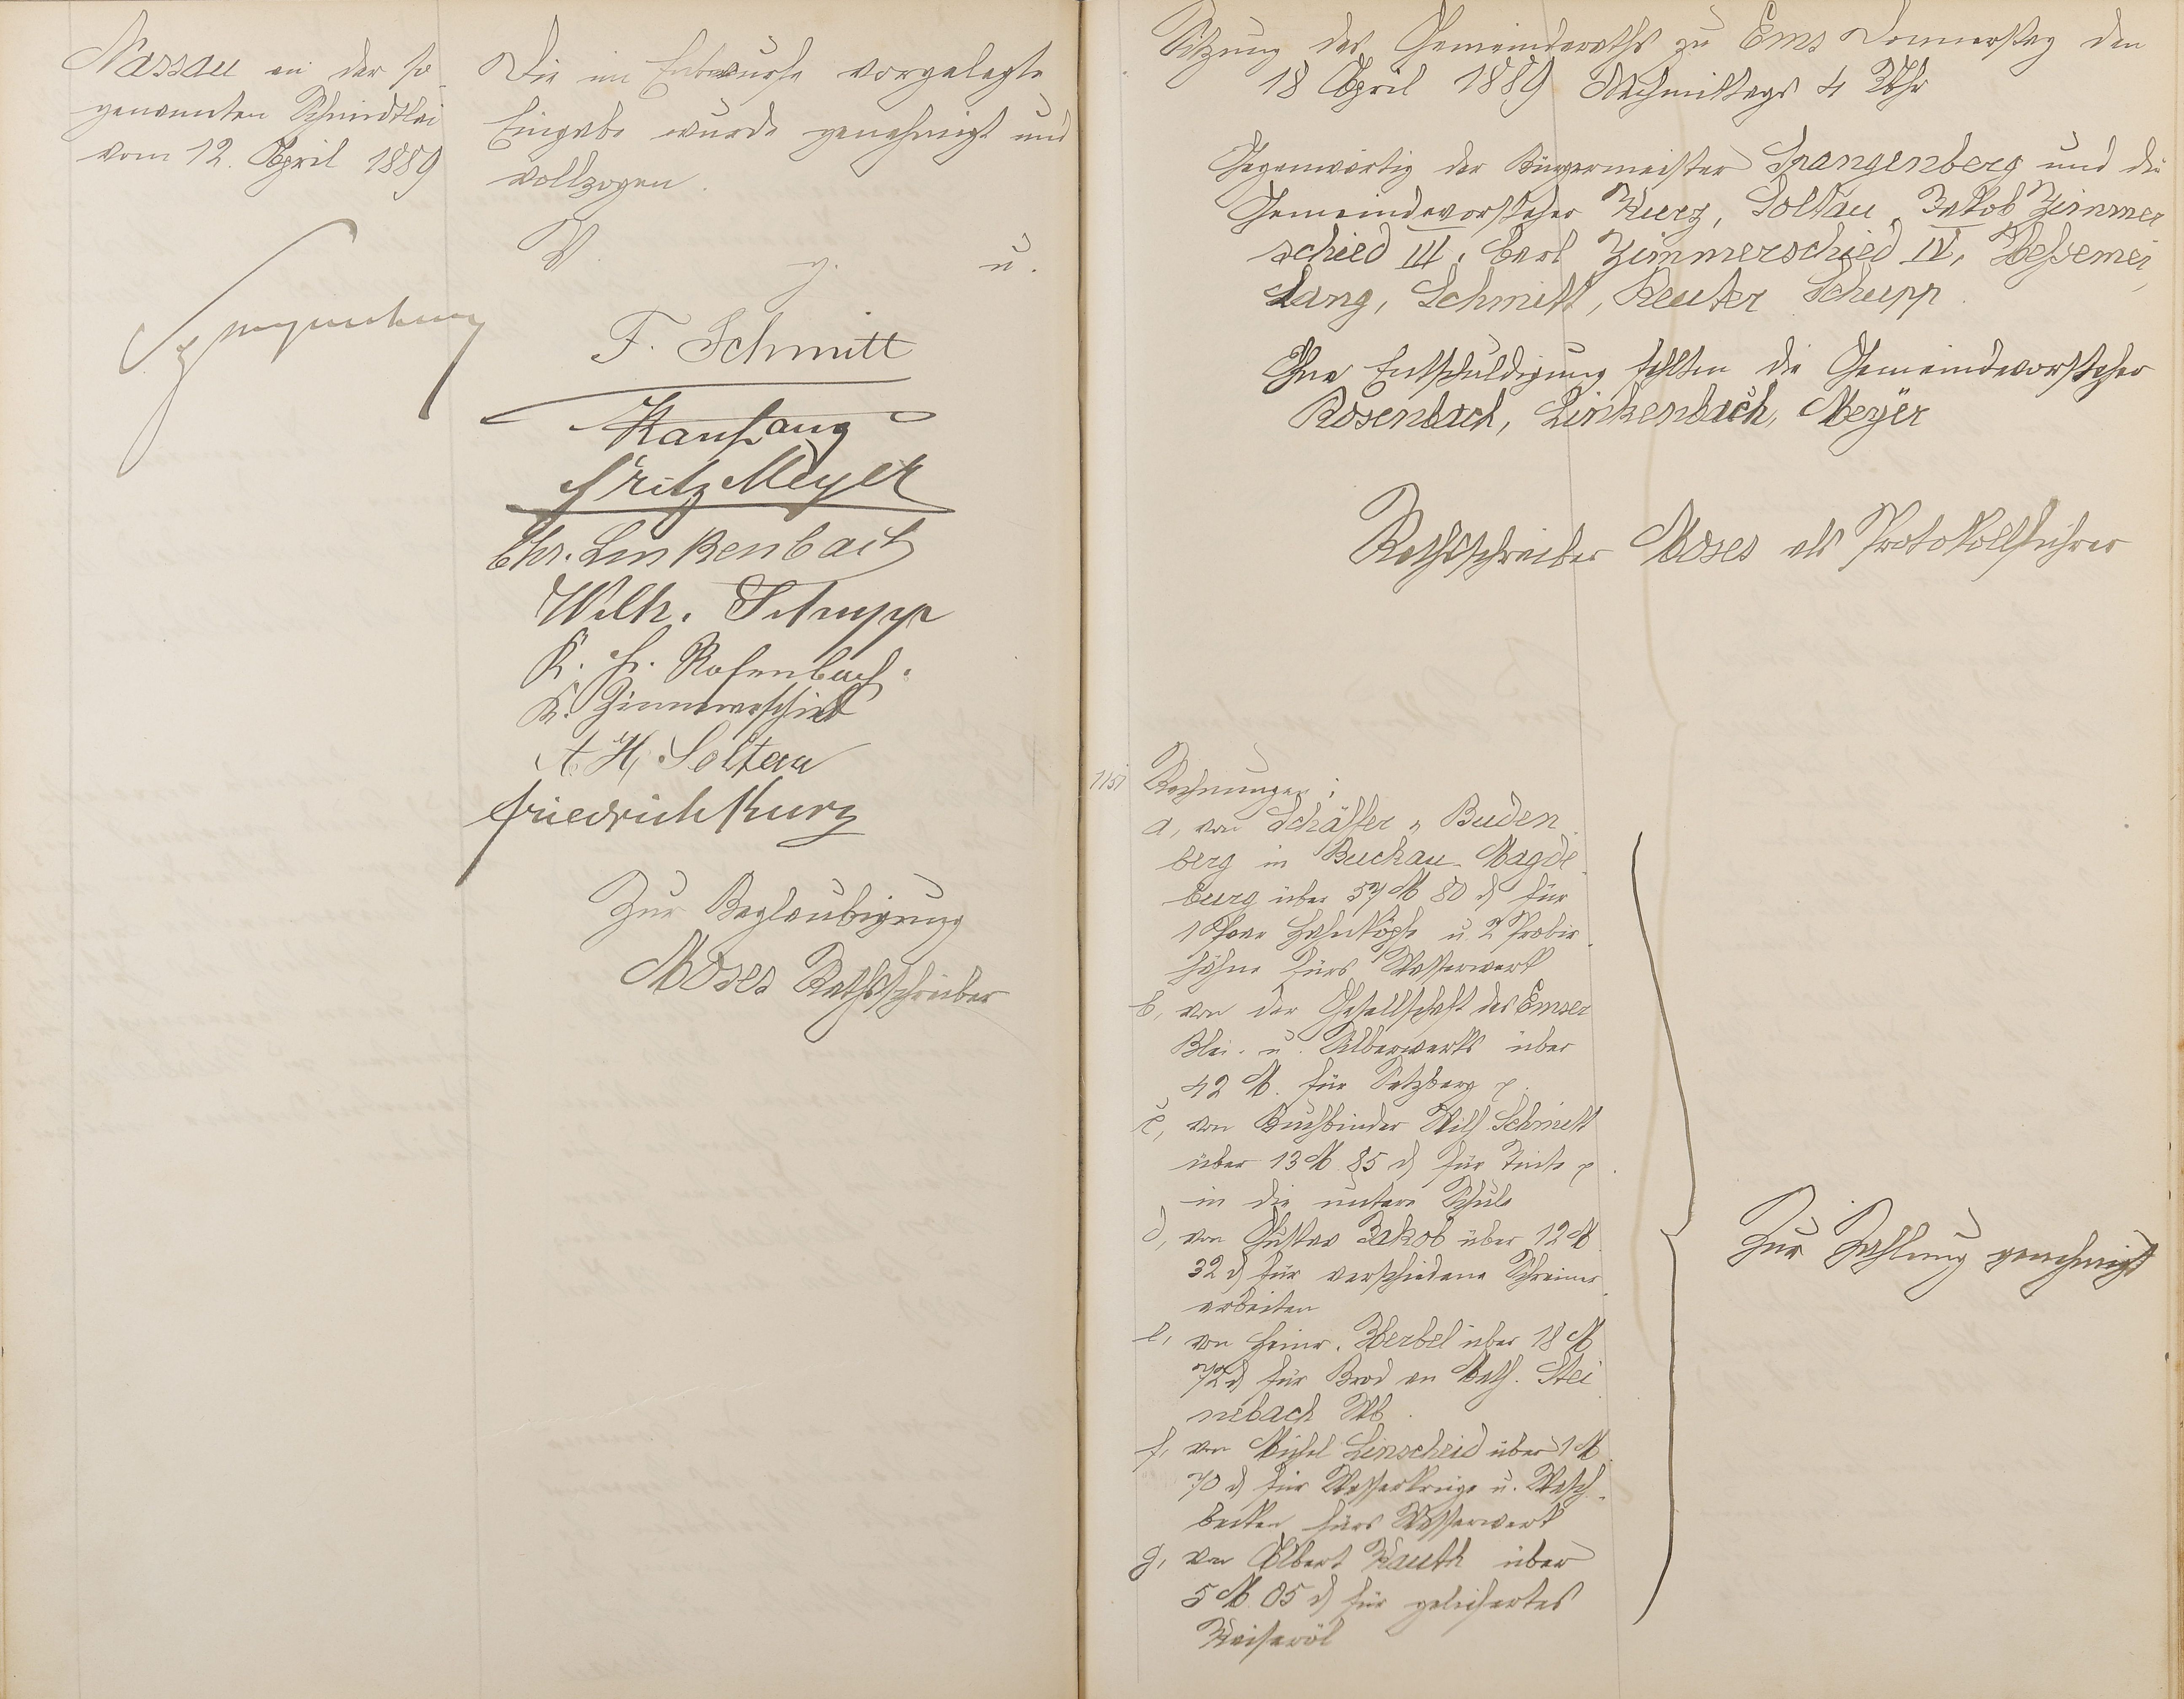 Nassau an der so
genannten Schmidtlai
vom 12. April 1889
Spangenberg
Die im Entwurfe vorgelegte
Eingabe wurde genehmigt und
vollzogen.
V. g. u.
F. Schmitt
Fritz Meyer
Chr. Linkenbach
Wilh. Schupp
K. H. Rosenbach.
K. Zimmerschied
A. H. Soltau
Friedrich Kurz
Zur Beglaubigung
Moses Rathsschreiber
Sitzung des Gemeinderaths zu Ems Donnerstag den
18 April 1889 Nachmittags 4 Uhr
Gegenwärtig der Bürgermeister Spangenberg und die
Gemeindevorsteher Kurz, Soltau, Jakob Zimmer
schied III, Carl Zimmerschied IV,
Lang, Schmitt, Reuter Schupp.
Ohne Entschuldigung fehlten die Gemeindevorsteher
Rosenbach, Linkenbach, Meyer
Rathsschreiber Moses als Protokollführer
Rechnungen:
a, von Schäffer u Buden
berg in Buckau-Magde
burg über 57 M 80 d für
1 Paar Hahnköpfe u. 2 Probir
hähne fürs Wasserwerk
b, von der Gesellschaft des Emser
Blei- u. Silberwerks über
42 M. für Setzberg p.
c, von Buchbinder Wilh Schmitt
über 13 M. 85 d für Tinte p
in die untere Schule
d, von Gustav Jakob über 12 M
32 d für verschiedene Schreiner
arbeiten
e, von Heinr. Herbel über 18 M
72 d für Brod an Math. Stei
nebach Wb.
f, von Michel Linscheid über 1 M.
70 d für Wasserkrüge u. Wasch
becken fürs Wasserwerk
g, von Albert Kauth über
5 M. 05 d für geliefertes
Zur Zahlung genehmigt